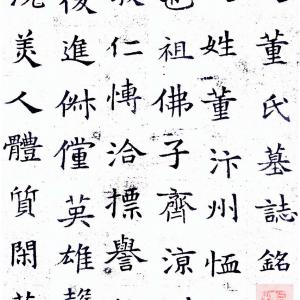 董氏墓誌銘
姓董汴州恤
也祖佛子齊涼
仁愽洽標譽
後進俶儻英雄
美人體質閑